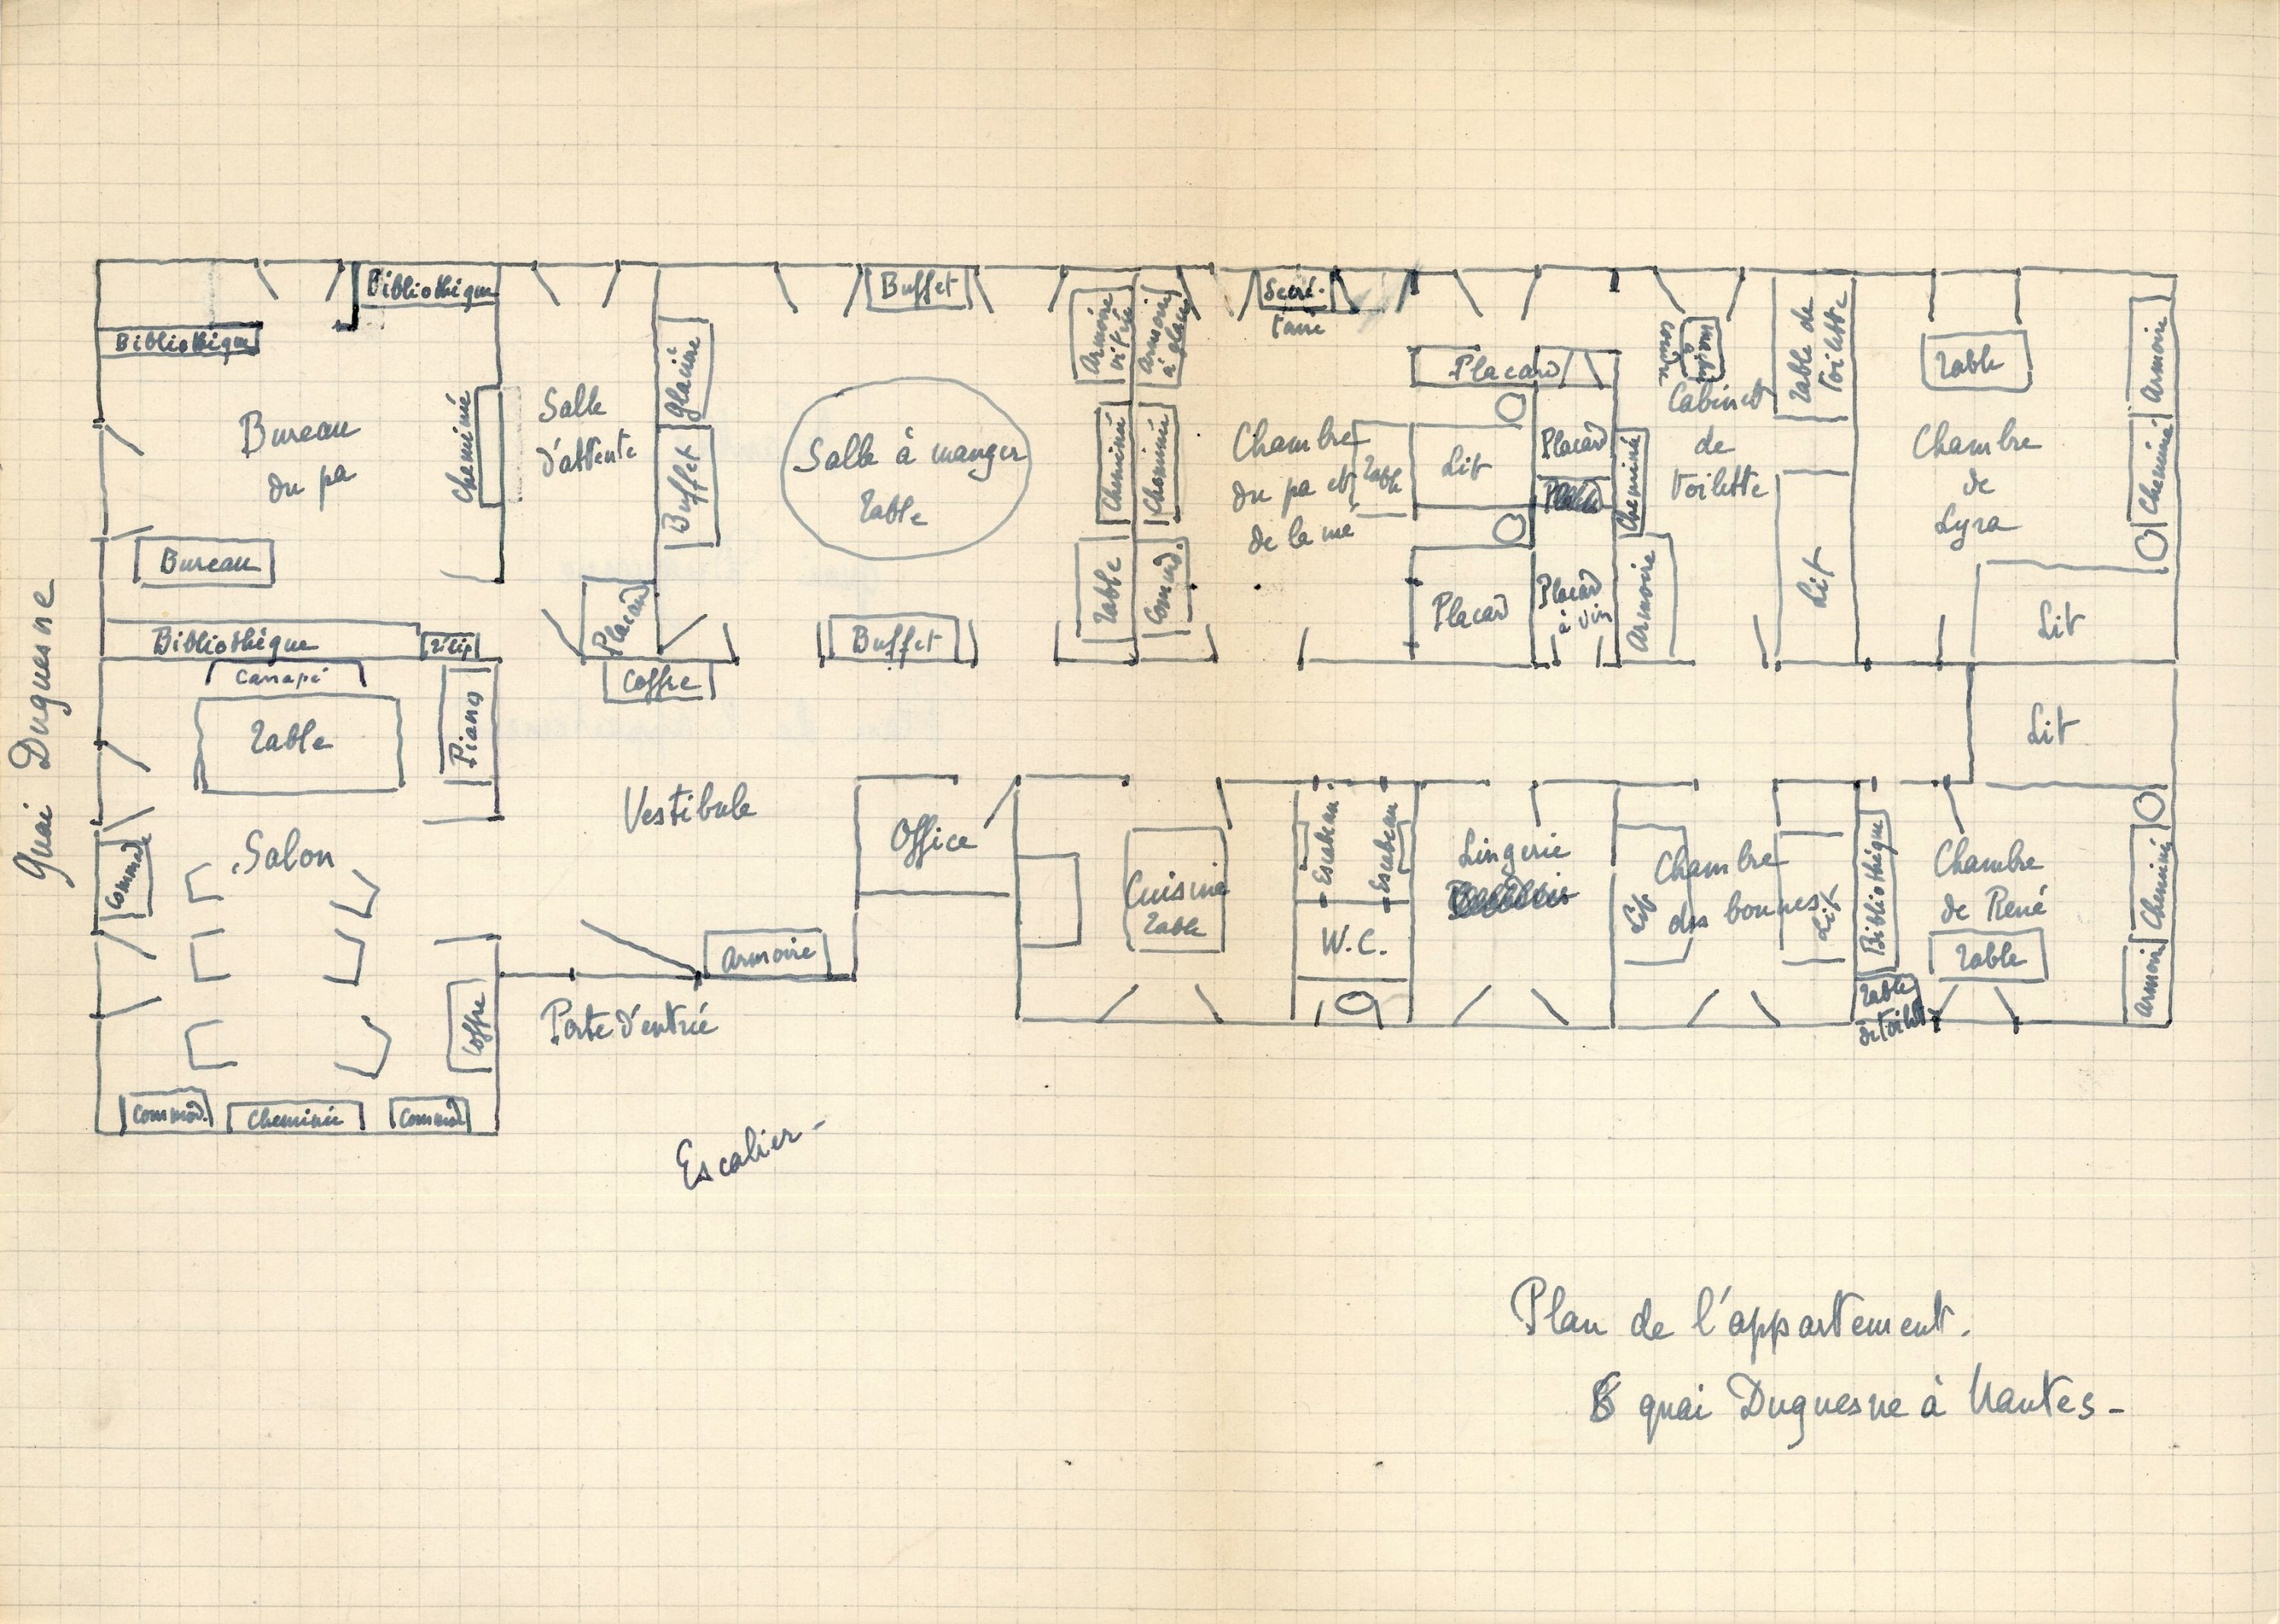 Bibliothèque
Bibliothèque
Bureau
du pa
Cheminée
Bureau
Bibliothèque
Quai Duquesne
Salle
d'attente
Placard
Glacière
Buffet
Buffet
Salle à manger
Table
Buffet
Coffre
Armoire
vitrée
Cheminée
Table
Armoire
à glace
Cheminée
Comod.
Secré-
taire
Chambre
du pa et
de la mé
Table
Lit
Placard
Placard
Placard
Placard
à vin
Cheminée
Armoire
Machine
à
coudre
Cabinet
de
toilette
Table de
toilette
Lit
Table
Chambre
de
Lyra
Armoire
Cheminée
Lit
Canapé
Table
Piano
Salon
Commode
Coffre
Commod.
Cheminée
Commod
Vestibule
Armoire
Porte d'entrée
Escalier -
Office
Cuisine
Table
Escabeau
Escabeau
W.C.
Lingerie
Chambre
des bonnes
Lit
Lit
Bibliothèque
Table
de toilet
Lit
Chambre
de René
Table
Cheminée
Armoir
Plan de l'appartement.
quai Duquesne à Nantes -